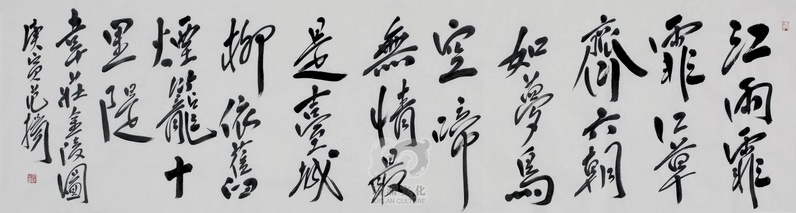 江雨霏
霏江草
齊六朝
如夢鳥
空啼
無情最
是臺城
柳依舊
煙籠十
里隄
韋莊金陵圖
庚寅范
CULTURE